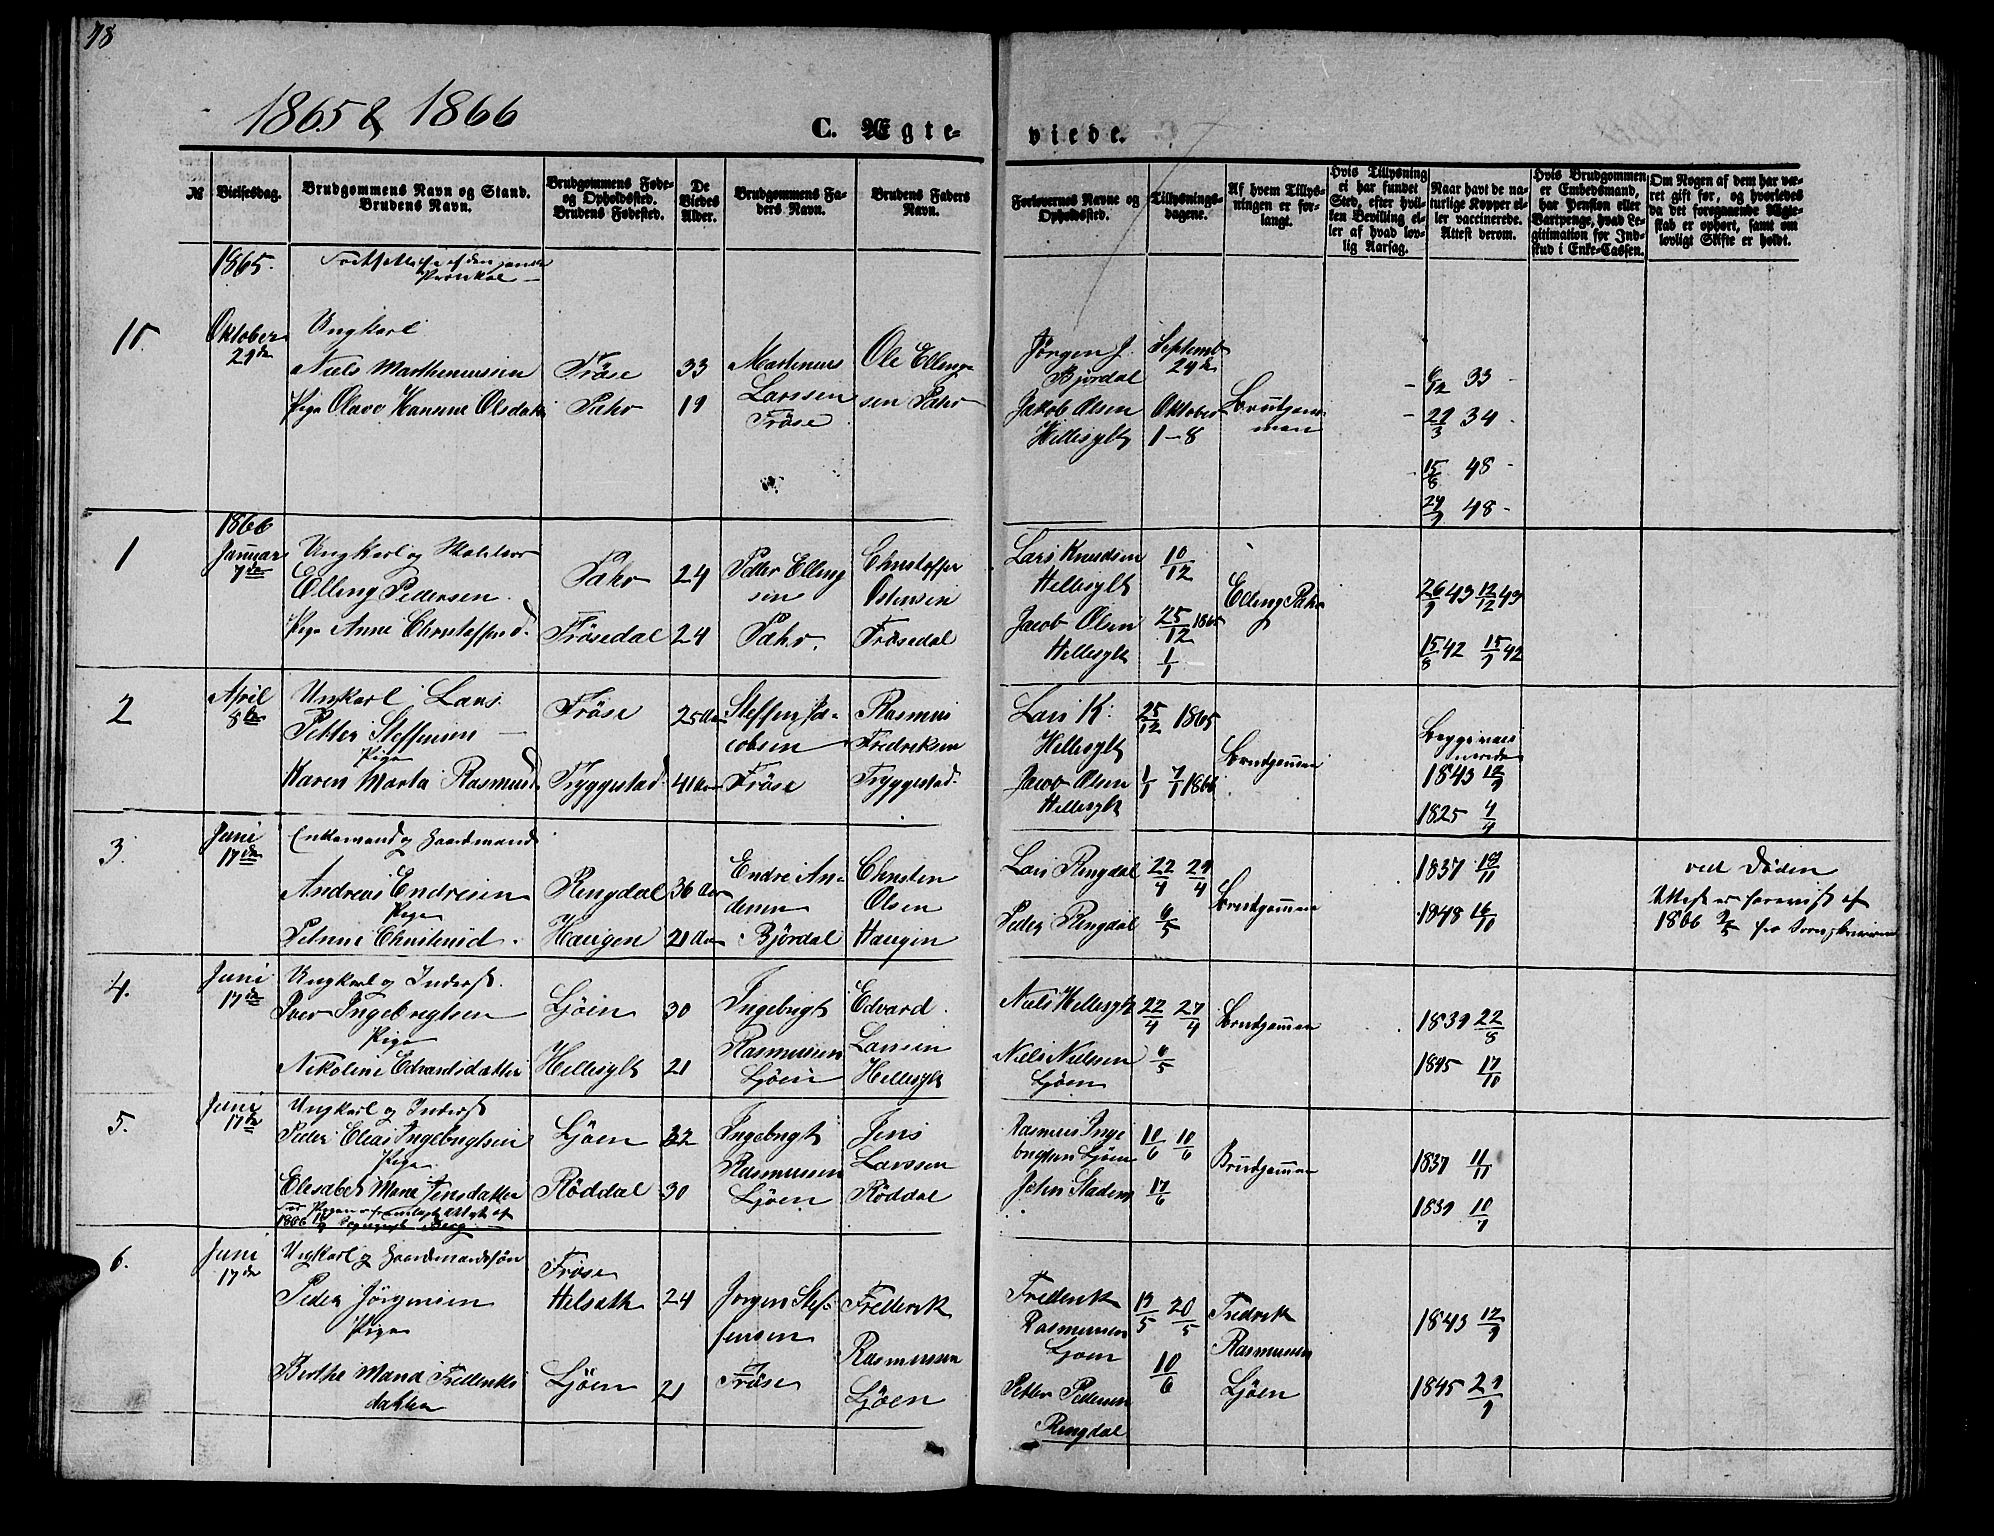 78
1865 & 1866
C. Ægte-
viede.
№
Vielsesdag.
Brudgommens Navn og Stand.
Brudens Navn.
Brudgommens Føde-
og Opholdssted.
Brudens Fødested.
De
Viedes
Alder.
Brudgommens Fa-
ders Navn.
Brudens Faders
Navn.
Forlovernes Navne og
Opholdssted.
Tillysnings-
dagene.
Af hvem Tillys-
ningen er for-
langt.
Hvis Tillysning
ei har fundet
Sted, efter hvil-
ken Bevilling el-
ler af hvad lov-
lig Aarsag.
Naar havt de na-
turlige Kopper el-
ler vaccinerede.
Attest derom.
Hvis Brudgommen
er Embedsmand,
har Pension eller
Vartpenge, hvad Le-
gitimation for Ind-
skud i Enke-Cassen.
Om Nogen af dem har væ-
ret gift før, og hvorledes
da det foregaaende Ægte-
skab er ophørt, samt om
lovligt Skifte er holdt.
1865.
Oktober
Ungkarl
Niels Marthinussen
Frøse
33
Martinus
Larssen
Frøse
Ole Elling-
sen Tahr
Pige Olave Hansine Olsdatter
Tahr
19
Jørgen J.
Bjørdal
Jakob Olsen
Hellesylt
Septemb
24de
Oktober
1-8
Brudgom-
men
6/12 33
21/3 34
15/8 48
29/9 48
1
1866
Januar
7de
Ungkarl og
Elling Pedersen
Tahr
24
Peder Elling
sen
Tahr.
Christoffer
Ostensen
Frøsedal
Pige Anne Christoffersd.
Frøsedal
24
Lars Knudsen
Hellesylt
Jacob Olsen
Hellesylt
10/12
25/12 1865
1/1
Elling Tahr
26/9 43 12/12 43
15/8 42 15/9 42
2
April
8de
Ungkarl Lars
Petter Steffensen
Pige
Karen Marta Rasmusd
Frøse
Tryggestad
25 Aar
41 Aar
Steffen Ja-
cobsen
Frøse
Rasmus
Fredriksen
Tryggestad
Lars K.
Hellesylt
Jacob Olsen
Hellesylt
25/12 1865
1/1 7/1 1866
Brudgommen
Begge vacci
nerede
1843 12/9
1825 4/4
3.
Juni
17de
Enkemand og Gaardmand
Andreas Endresen
Pige
Petrine Christensd.
Ringdal
Haugen
36 Aar
21 Aar
Endre An-
dersen
Bjørdal
Christen
Olsen
Haugen
Lars Ringdal
Peder Ringdal
22/4 29/4
6/5
Brudgommen
1837 19/11
1848 16/10
ved Døden
Attest er forevist af
1866 2/5 fra Sorenskriveren
4.
Juni
17de
Ungkarl og Inderst.
Iver Ingebrigtsen
Pige
Nikoline Edvardsdatter
Ljøen
Hellesylt
30
21
Ingebrigt
Rasmussen
Ljøen
Edvard
Larsen
Hellesylt
Niels Hellesylt
Niels Nielsen
Ljøen
22/4 29/4
6/5
Brudgommen
1839 22/8
1845 17/10
5.
Juni
17de
Ungkarl og Inderst
Peder Elias Ingebrigtsen
Pige
Elesabet Marie Jensdatter
Ljøen
Røddal
32
30
Ingebrigt
Rasmussen
Ljøen
Jens
Larssen
Røddal
Rasmus Inge
brigtsen Ljøen
John Stadem
10/6 10/6
17/6
Brudgommen
1837 11/11
1839 10/9
6.
Juni
17de
Ungkarl og Gaardmandssøn
Peder Jørgensen
Pige
Berthe Maria Frederiks
datter
Frøse
Helsæth
Ljøen
24
21
Jørgen Stef-
fensen
Frøse
Frederik
Rasmussen
Ljøen
Frederik
Rasmussen
Ljøen
Petter Pedersen
Ringdal
19/5 20/5
10/6
Fredrik
Rasmussen
Ljøen
1843 12/9
1845 29/9